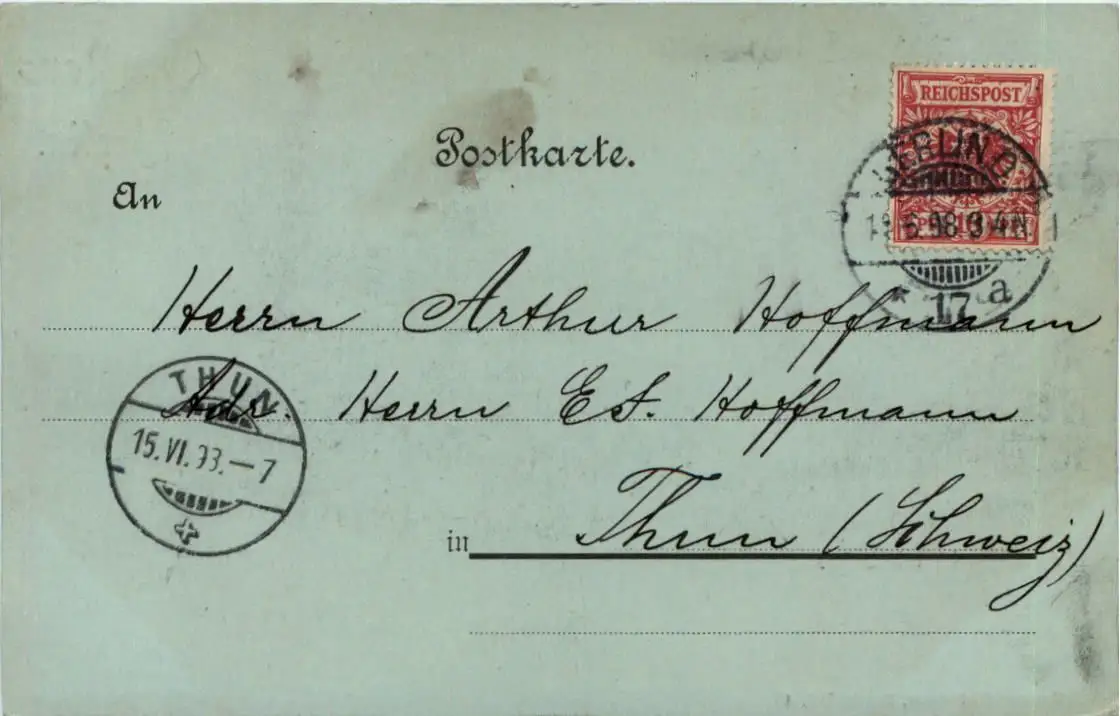 REICHSPOST
Postkarte.
BERLIN O
.6.98 3-4N.
17 a
An
Herrn Arthur Hoffmann
THUN
Adr. Herrn E. Hoffmann
15.VI.93.–7
in Thun (Schweiz)